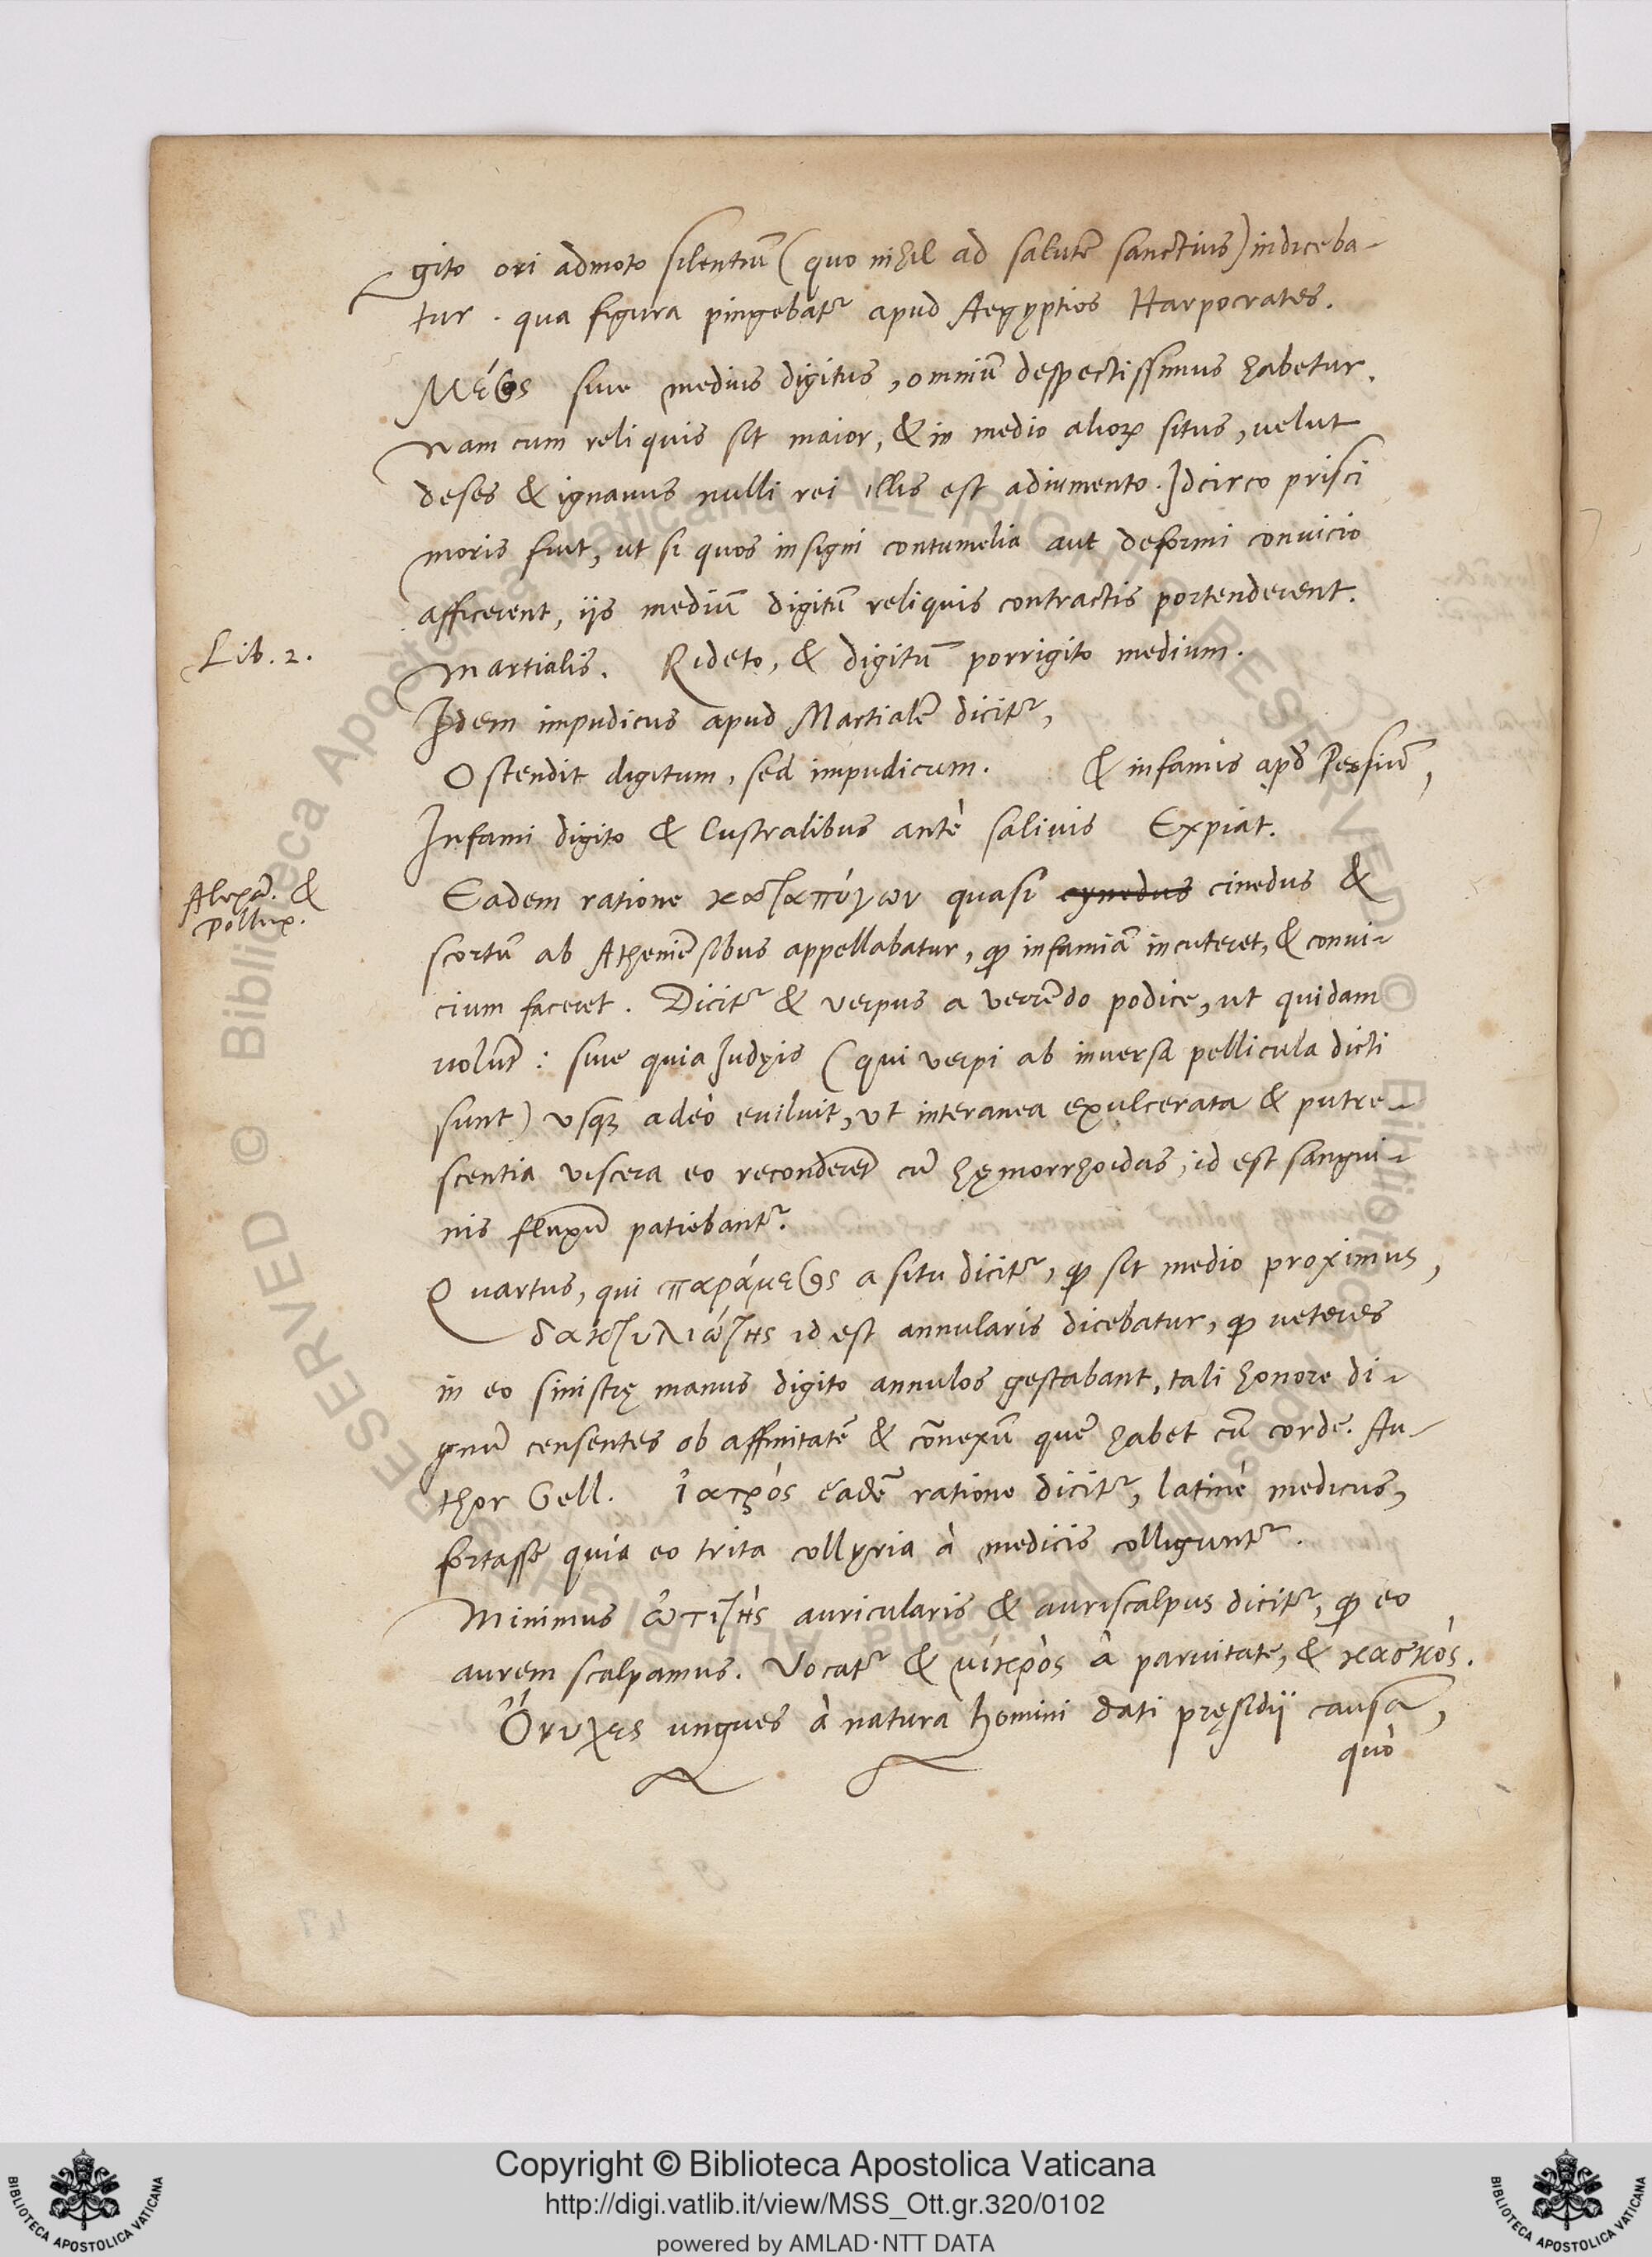 gito ori admoto silentiũ (quo nihil ad salutẽ sanctius) indiceba-
tur. qua figura pingebatr̃ apud Aegyptios Harpocrates.
Μέσος siue medius digitus, omniũ despectissimus habetur.
nam cum reliquis sit maior, & in medio alioꝝ situs, uelut
deses & ignauus nulli rei illis est adiumento. Idcirco prisci
moris fuit, ut si quos insigni contumelia aut deformi conuicio
afficerent, ijs mediũ digitũ reliquis contractis portenderent.
Lib. 2.
Martialis. Rideto, & digitũ porrigito medium.
Idem impudicus apud Martialẽ dicitr̃,
Ostendit digitum, sed impudicum. & infamis apd̃ Persiũ,
Infami digito & lustralibus antè saliuis Expiat.
Alexãd. &
Pollux.
Eadem ratione καταπύγων quasi cynedus cinedus &
scortũ ab Atheniẽsibus appellabatur, ꝙ infamiã incuteret, & conui-
cium faceret. Dicitr̃ & verpus a verrẽdo podice, ut quidam
uolũt: siue quia Iudęis (qui verpi ab inuersa pellicula dicti
sunt) vsqꝫ adeò euiluit, vt interanea exulcerata & putre-
scentia viscera eo reconderẽt cũ hęmorrhoidas, id est sangui-
nis fluxũ patiebantr̃.
Quartus, qui παράμεσος a situ dicitr̃, ꝙ sit medio proximus,
δακτυλιώτης id est annularis dicebatur, ꝙ ueteres
in eo sinistrę manus digito annulos gestabant, tali honore di-
gnũ censentes ob affinitatẽ & cõnexũ quẽ habet cũ corde. Au-
thor Gell. ἰατρός eadẽ ratione dicitr̃, latinè medicus,
fortasse quia eo trita collyria à medicis colliguntr̃.
Minimus ὠτιτὴς auricularis & auriscalpus dicitr̃, ꝙ eo
aurem scalpamus. Vocatr̃ & μίκρὸς à paruitate, &
Ὄνυχες ungues à natura homini dati pręsidij causa,
quò
© Biblioteca Apostolica Vaticana ALL RIGHTS RESERVED
Copyright © Biblioteca Apostolica Vaticana
http://digi.vatlib.it/view/MSS_Ott.gr.320/0102
powered by AMLAD·NTT DATA
BIBLIOTECA APOSTOLICA VATICANA
BIBLIOTECA APOSTOLICA VATICANA